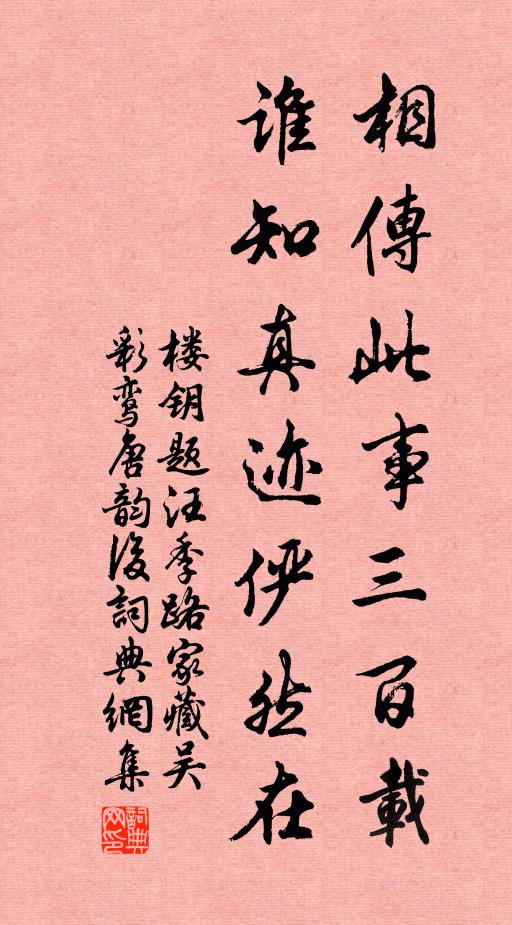 相傳此事三百載
谁知真迹俨然在
楼钥题汪季路家藏吴
彩鸾唐韵後詞典網集
詞典网印